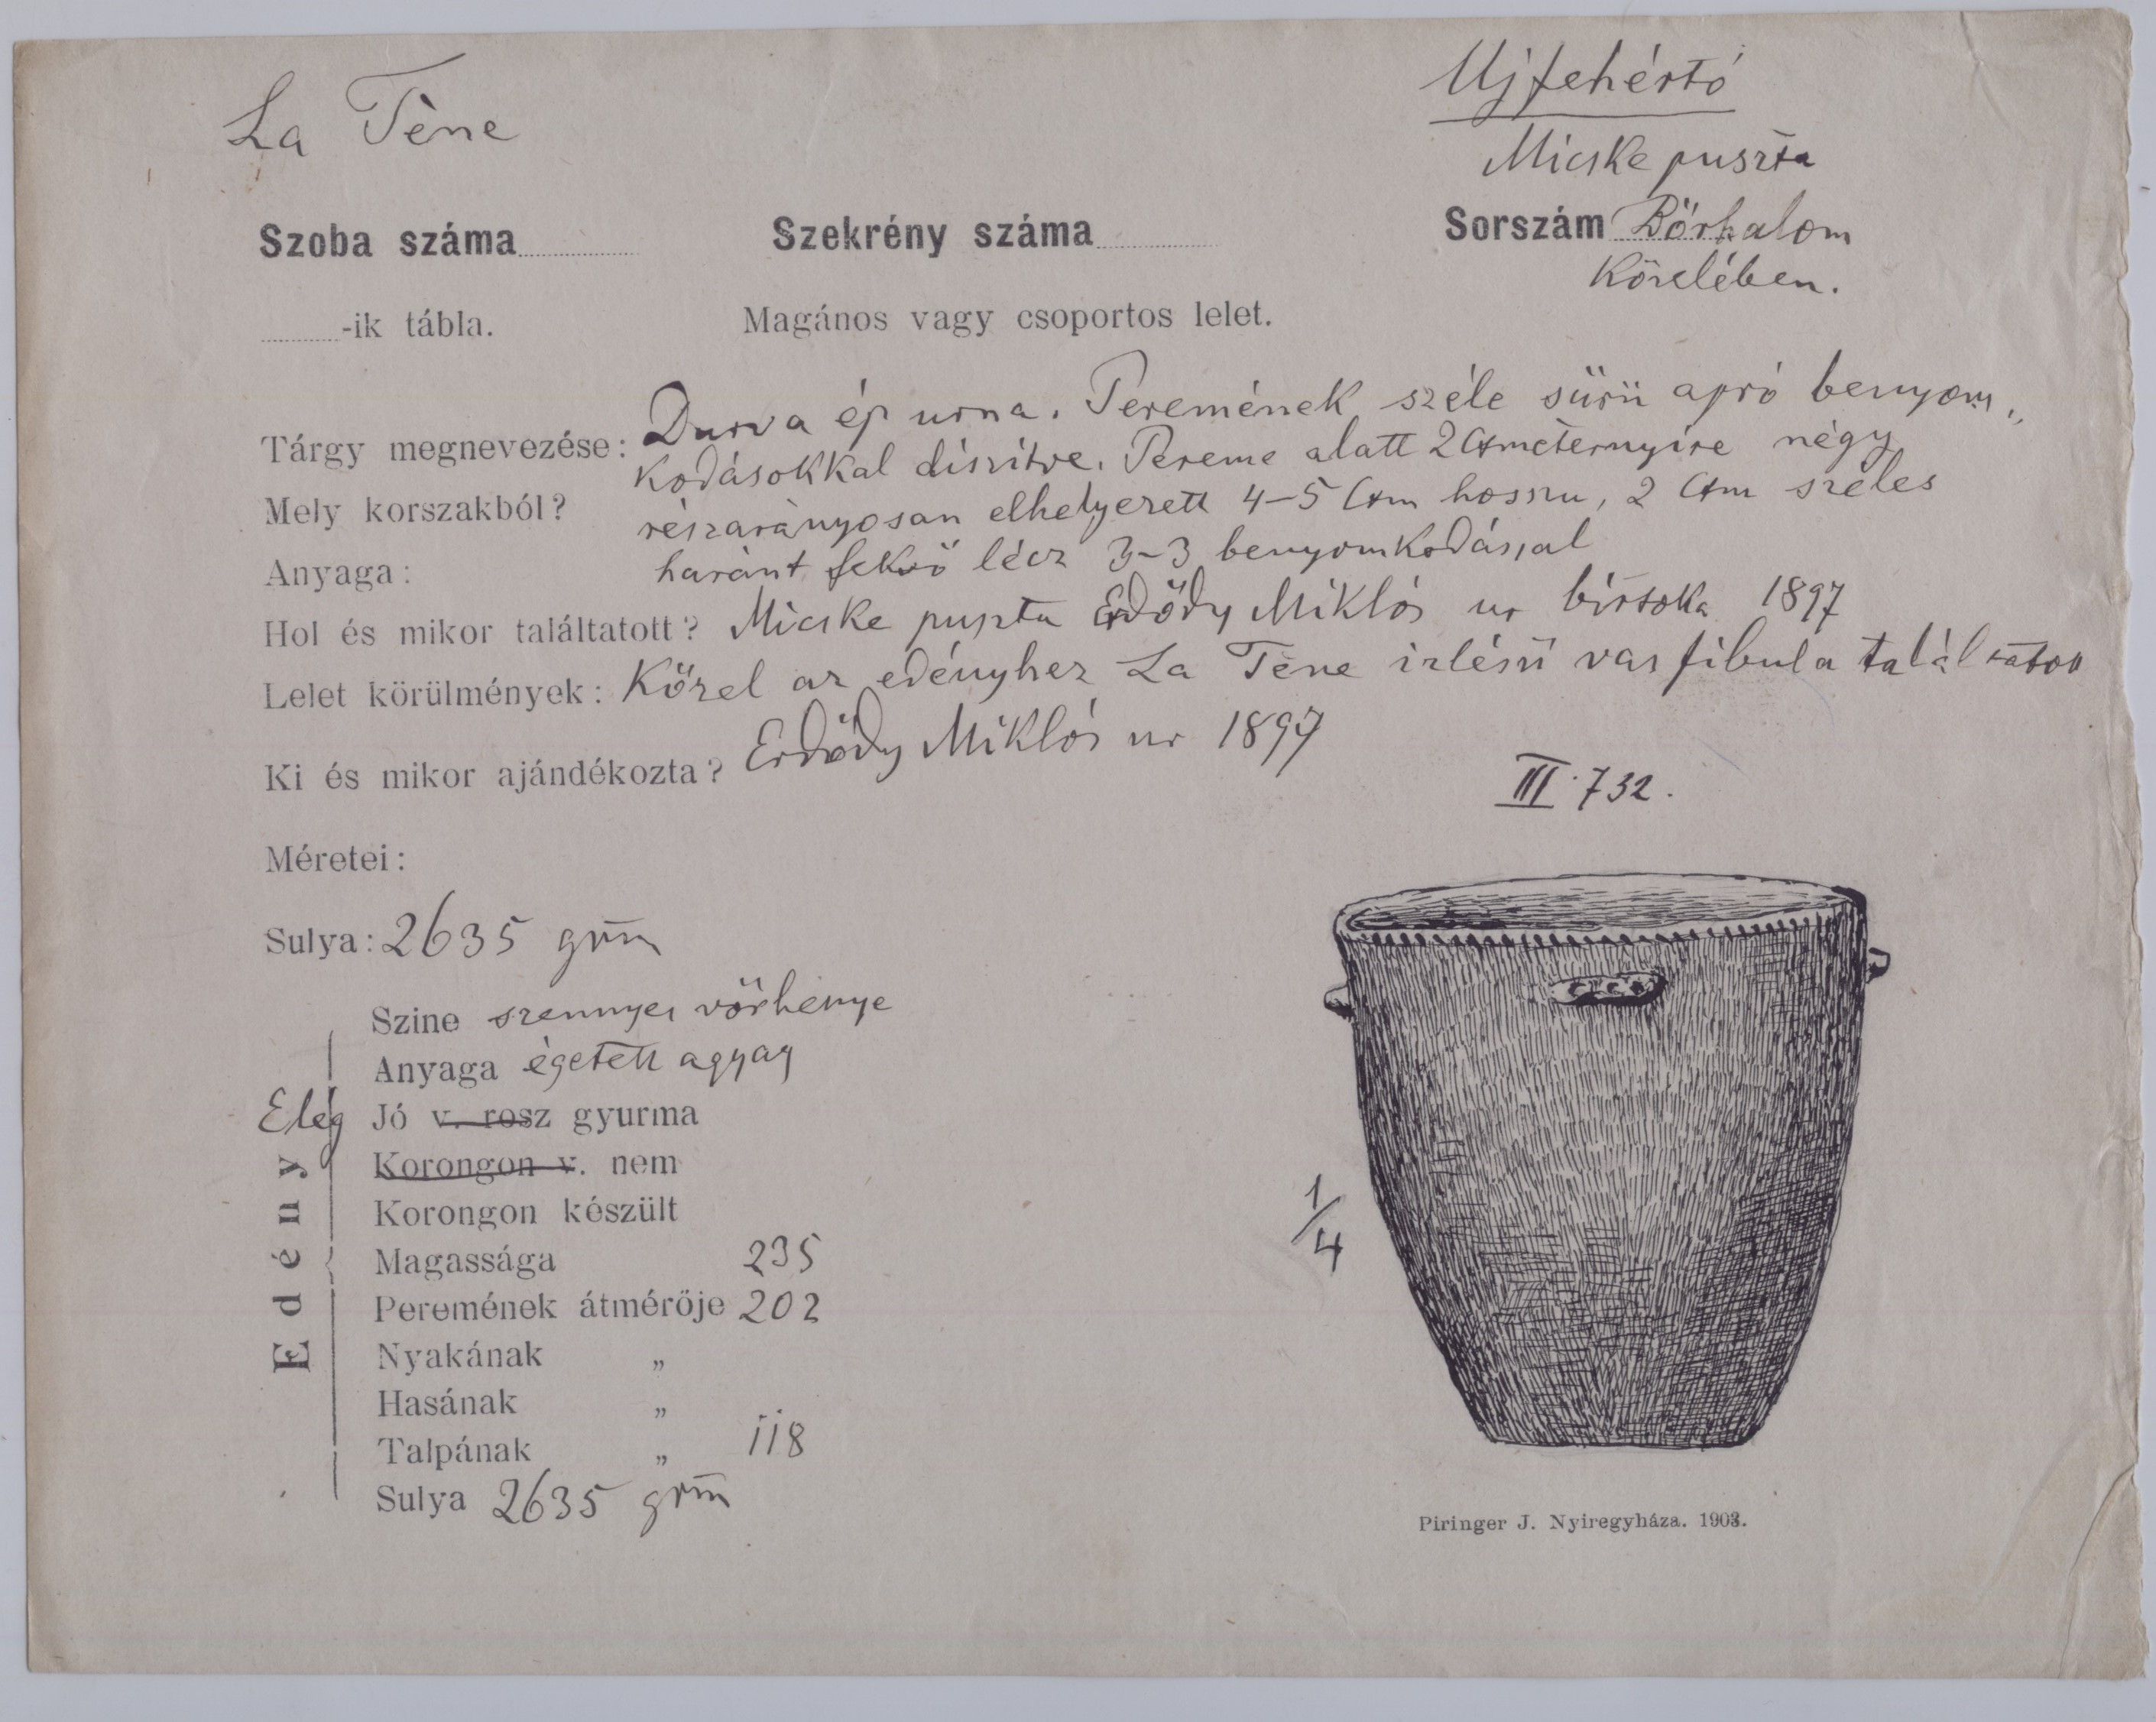 La Tène
Ujfehértó
Micske puszta
Szoba száma
Szekrény száma
Sorszám Börhalom
Közelében.
-ik tábla.
Magános vagy csoportos lelet.
Tárgy megnevezése: Durva ép urna. Peremének széle sürü apró benyom„
kodásokkal diszitve. Pereme alatt 2 Ctmeternyire négy
Mely korszakból?
részarányosan elhelyezett 4–5 Ctm hosszu, 2 Ctm széles
Anyaga:
haránt fekvő lécz 3–3 benyomkodással
Hol és mikor találtatott? Micske puszta Erdődy Miklós ur birtoka 1897
Lelet körülmények: Közel az edényhez La Tène izlésü vas fibula találtatott
Ki és mikor ajándékozta? Erdődy Miklós ur 1897
III. 732.
Méretei:
Sulya: 2635 grm
Edény
Szine szennyes vörhenye
Anyaga égetett agyag
Elég Jó v. rosz gyurma
Korongon v. nem
Korongon készült
Magassága 235
Peremének átmérője 202
Nyakának „
Hasának „
Talpának „ 118
Sulya 2635 grm
1/4
Piringer J. Nyiregyháza. 1903.